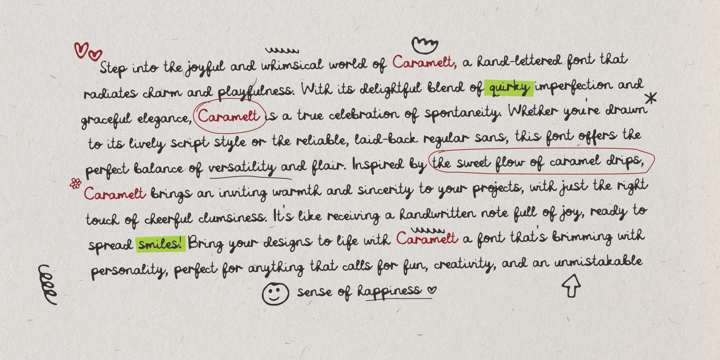 Step into the joyful and whimsical world of Caramelt, a hand-lettered font that
radiates charm and playfulness. With its delightful blend of quirky imperfection and
graceful elegance, Caramelt is a true celebration of spontaneity. Whether you're drawn
to its lively script style or the reliable, laid-back regular sans, this font offers the
perfect balance of versatility and flair. Inspired by the sweet flow of caramel drips,
Caramelt brings an inviting warmth and sincerity to your projects, with just the right
touch of cheerful clumsiness. It's like receiving a handwritten note full of joy, ready to
spread smiles! Bring your designs to life with Caramelt a font that's brimming with
personality, perfect for anything that calls for fun, creativity, and an unmistakable
sense of happiness